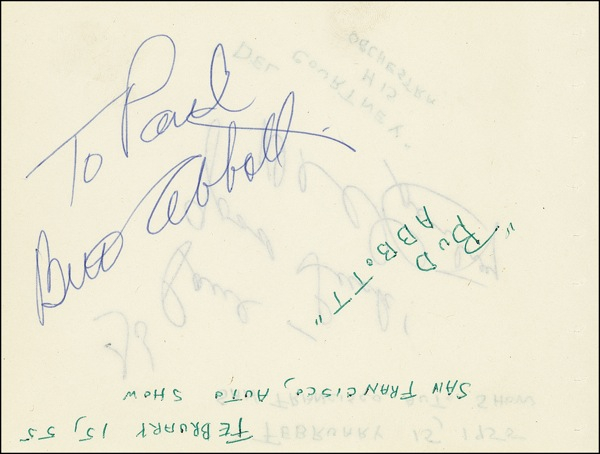 To Paul
Bud Abbott
FEBRUARY 15, 55
SAN FRANCISCO, AUTO SHOW
"BUD
ABBOTT"
DEL COURTNEY.
HIS
ORCHESTRA
SAN FRANCISCO AUTO SHOW
FEBRUARY 15, 1955